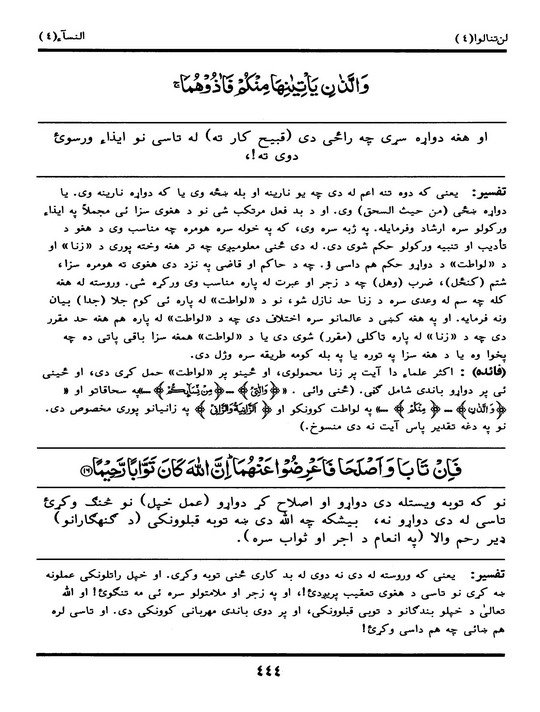 لن تنالوا(٤) النسآء(٤)
وَالَّذٰنِ يَاْتِيٰنِهَا مِنْكُمْ فَاٰذُوْهُمَا ۚ
او هغه دواړه سړی چه راځی دی (قبیح کار ته) له تاسی نو ایذاء ورسوئ
دوی ته!،
تفسیر: یعنی که دوه تنه اعم له دی چه یو نارینه او بله ښځه وی یا که دواړه نارینه وی. یا
دواړه ښځی (من حیث السحق) وی. او د بد فعل مرتکب شی نو د هغوی سزا ئی مجملاً په ایذاء
ورکولو سره ارشاد وفرمایله. په ژبه سره وی، که په خوله سره هومره چه مناسب وی د هغو د
تأدیب او تنبیه ورکولو حکم شوی دی. له دی ځنی معلومیږی چه تر هغه وخته پوری د «زنا» او
د «لواطت» د دواړو حکم هم داسی ؤ. چه د حاکم او قاضی په نزد دی هغوی ته هومره سزا،
شتم (کنځل)، ضرب (وهل) چه د زجر او عبرت له پاره مناسب وی ورکړه شی. وروسته له هغه
کله چه سم له وعدی سره د زنا حد نازل شو، نو د «لواطت» له پاره ئی کوم جلا (جدا) بیان
ونه فرمایه. او په هغه کښی د عالمانو سره اختلاف دی چه د «لواطت» له پاره هم هغه حد مقرر
دی چه د «زنا» له پاره تاکلی (مقرر) شوی دی یا د «لواطت» همغه سزا باقی پاتی ده چه
پخوا وه یا د هغه سزا په توره یا په بله کومه طریقه سره وژل دی.
(فائده) : اکثر علماء دا آیت پر زنا محمولوی، او ځینو پر «لواطت» حمل کړی دی، او ځینی
ئی پر دواړو باندی شامل ګڼی. (ځنی وائی . «﴿وَالّٰتِيْ﴾ــ﴿مِنْ نِّسَآىِٕكُمْ﴾ ــ»په سحاقاتو او «
﴿وَالَّذٰنِ﴾ــ﴿مِنْكُمْ﴾ ــ» په لواطت کوونکو او ﴿اَلزَّانِيَةُ وَالزَّانِيْ﴾ په زانیانو پوری مخصوص دی.
نو په دغه تقدیر پاس آیت نه دی منسوخ.)
فَاِنْ تَابَا وَاَصْلَحَا فَاَعْرِضُوْا عَنْهُمَا ۗ اِنَّ اللّٰهَ كَانَ تَوَّابًا رَّحِيْمًا ﴿١٦﴾
نو که توبه ویستله دی دواړو او اصلاح کړ دواړو (عمل خپل) نو څنګ وکړئ
تاسی له دی دواړو نه، بیشکه چه الله دی ښه توبه قبلوونکی (د ګنهګارانو)
ډیر رحم والا (په انعام د اجر او ثواب سره).
تفسیر: یعنی که وروسته له دی نه دوی له بد کاری ځنی توبه وکړی. او خپل راتلونکی عملونه
ښه کړی نو تاسی د هغوی تعقیب پریږدئ!، او په زجر او ملامتولو سره ئی مه تنګوئ! او الله
تعالیٰ د خپلو بندګانو د توبی قبلوونکی، او پر دوی باندی مهربانی کوونکی دی. او تاسی لره
هم ښائی چه هم داسی وکړئ!
٤٤٤